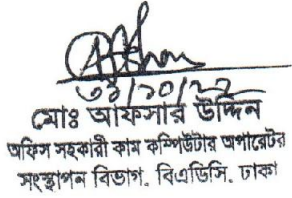 মোঃ আফসার উদ্দিন
অফিস সহকারী কাম কম্পিউটার অপারেটর
সংস্থাপন বিভাগ, বিএডিসি, ঢাকা